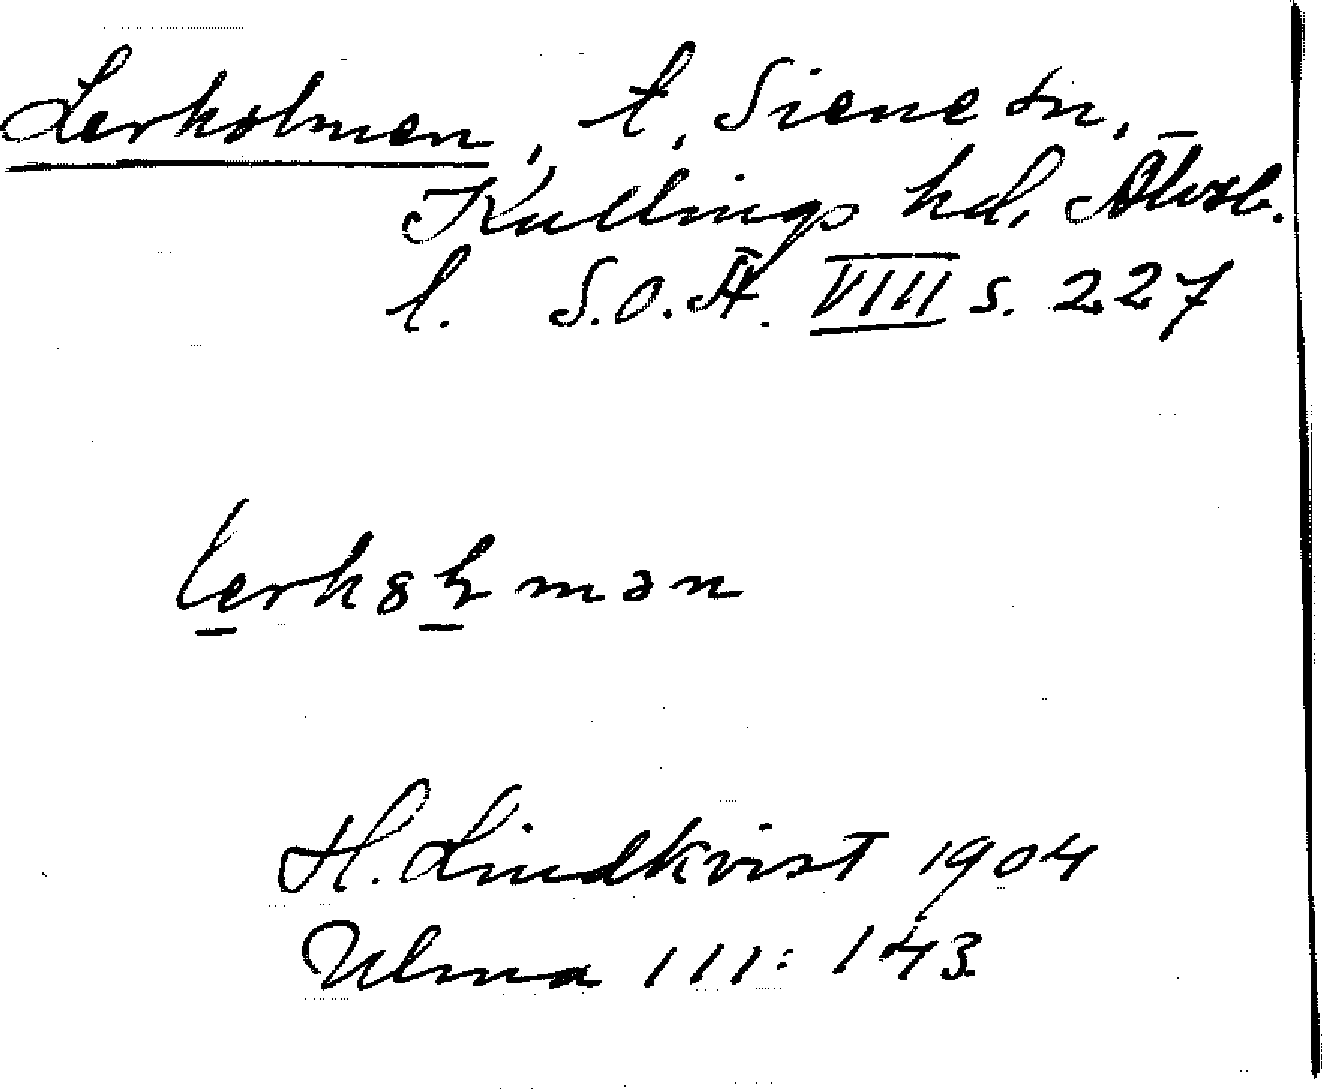 Lerholmen, t, Siene sn,
Kullings hd, Älvsb.
l. S.O.Ä. VIII s. 227
H. Lindkvist 1904
Ulma 111:143.